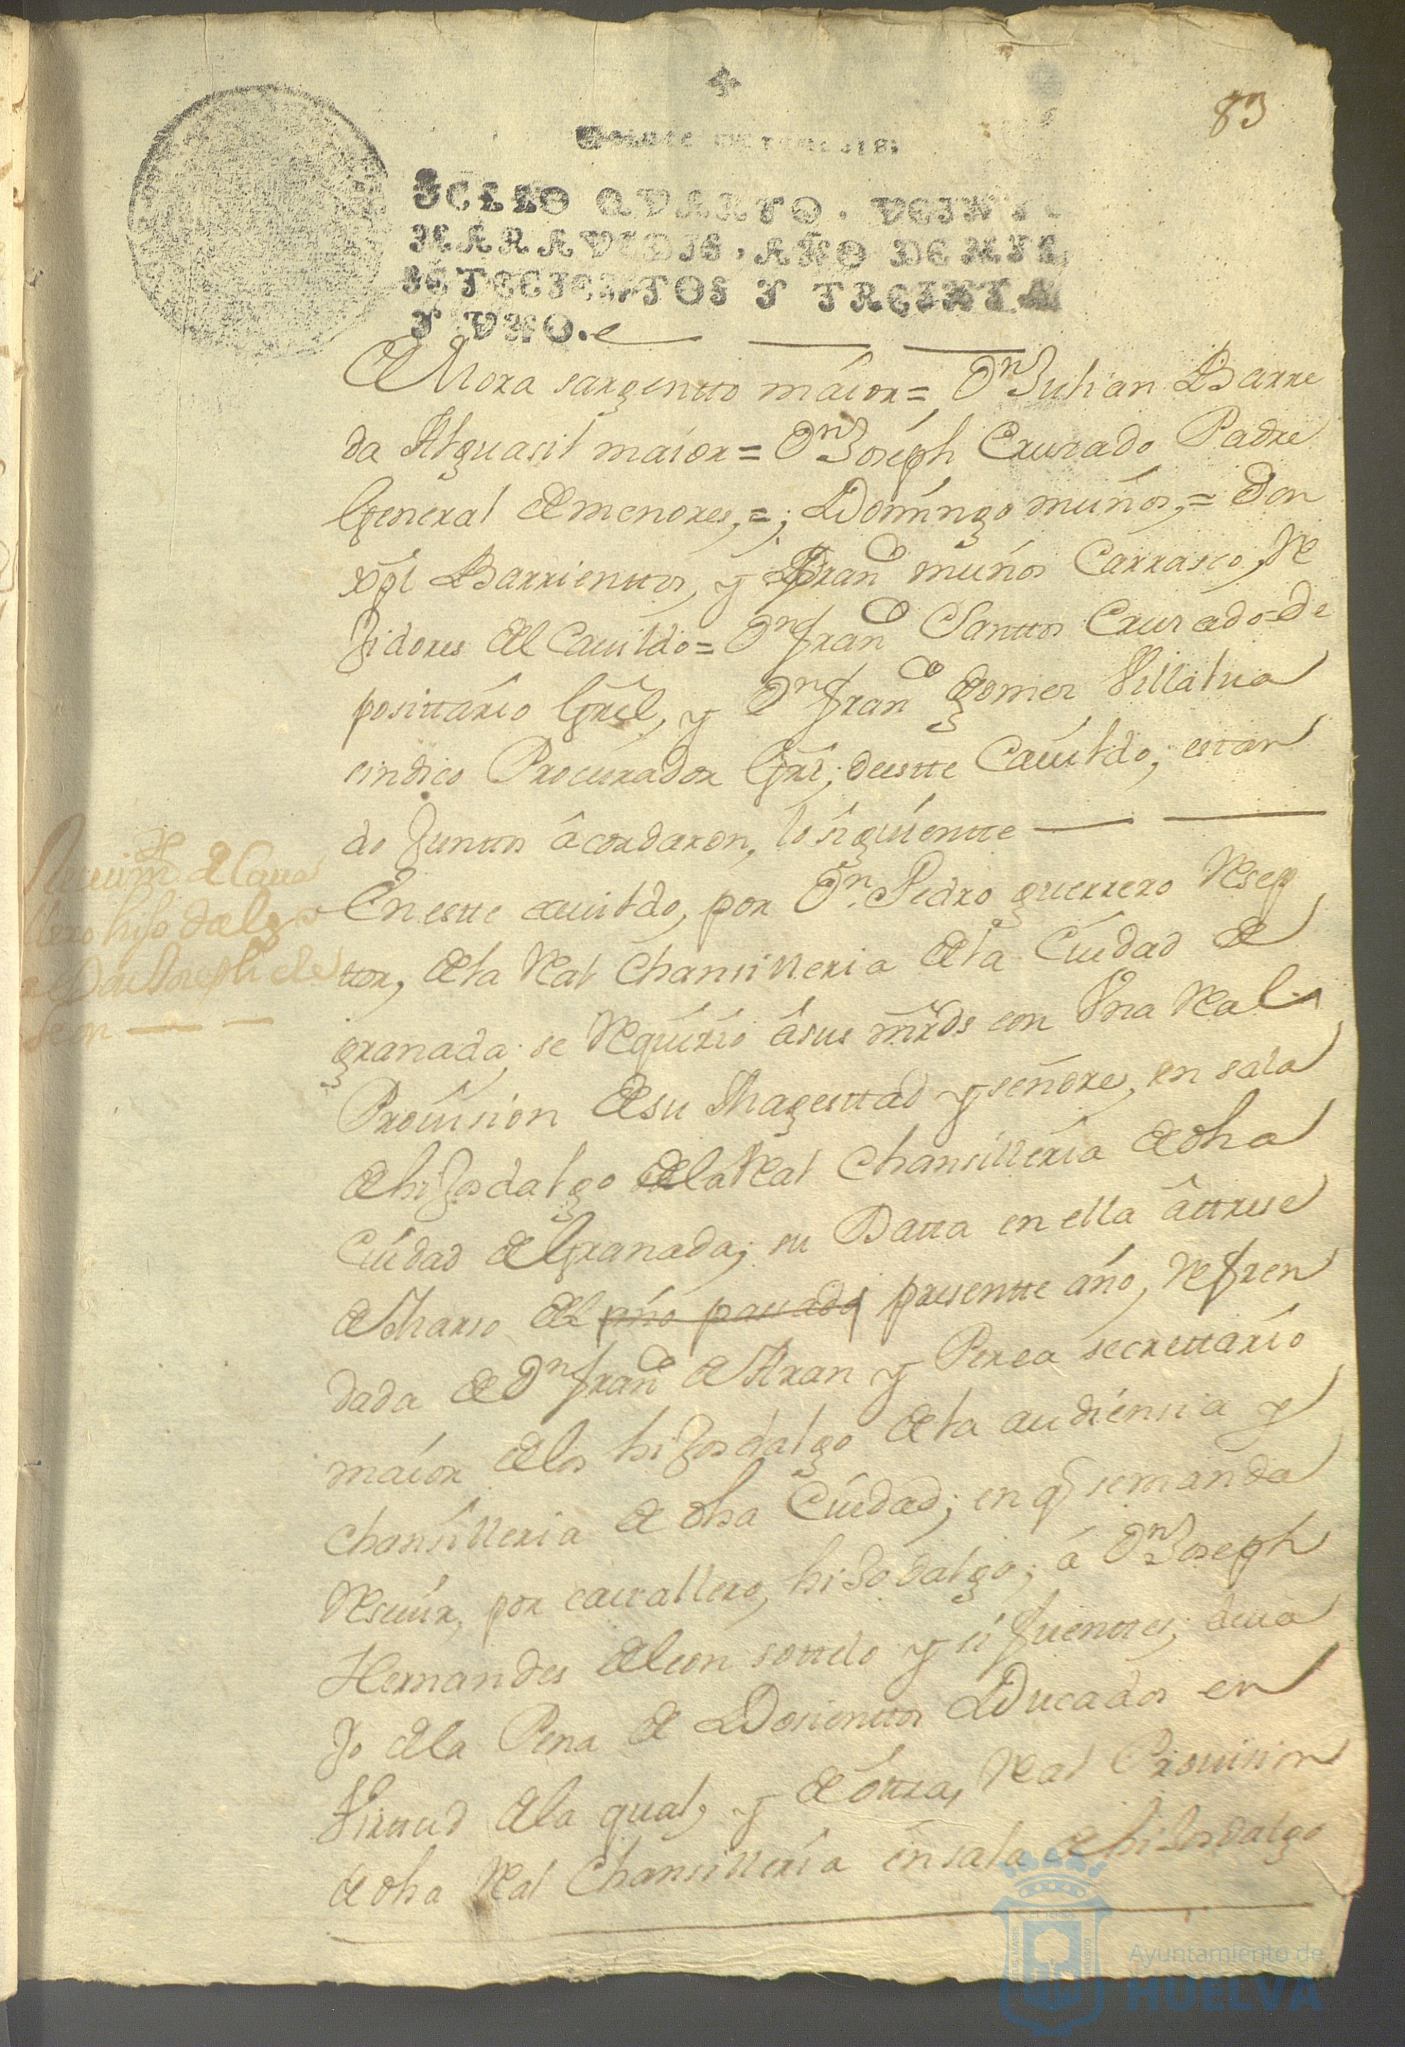 83
SELLO QVARTO, VEINTE
MARAVEDIS, AÑO DE MIL
SETECIENTOS Y TREINTA
Y VNO.
de Mora sargentto máior = Dn Julian Barre
da Alguasil maíor = Dn Joseph Crusado Padre
General de menores, =; Domíngo muños, = Don
xpl Barrienttos, y Franco muños Carrasco, Re
Jidores del Cauildo = Dn franco Santtos Crusado = De
posittário Grãl, y Dn franco gomes Villalua
sindico Procurador Grãl, deestte Cauíldo; estan
do Junttos âcordaron, lo sigúientte
Reciuimto de Caua
llero hijo dalgo
de Dn Joseph de
Leon
En estte cauildo, por Dn Pedro guerrero Resep
tor, de la Real Chansilleria de la Cíudad de
granada; se Requírío âsus mrds con Vna Real
Prouísion de su Magesttad y señores, en sala
de hiJosdalgo de la Real Chansillería de dha
Cíudad de Granada; su Datta en ella âttrese
de Marso del año passado presentte áño, Refren
dada de Dn franco de Aran y Perea secrettarío
maíor de los hiJosdalgo de la audiénsia y
chansílleria de dha Cíudad; en q se manda
Resiuír, por cauallero, hiJodalgo; á Dn Joseph
Hernandes de leon sottelo y sifuenttes; deua
Jo de la Pena de Dosienttos Ducados en
Virttud de la qual, y de óttra, Real Prouision
de dha Real Chansillería en sala de hiJosdalgo
Ayuntamiento de
HUELVA